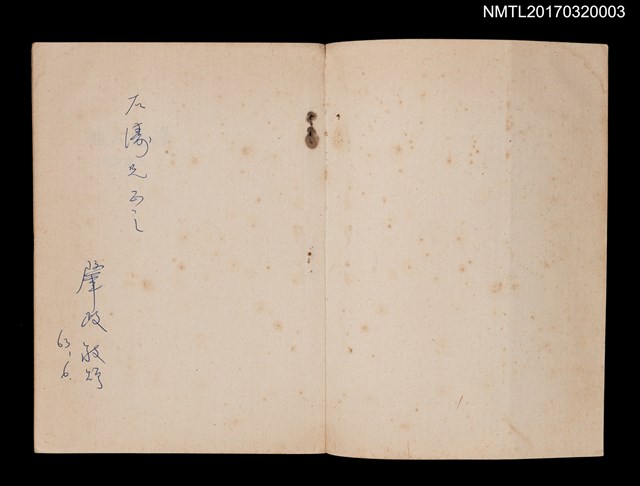 NMTL20170320003
石濤兄正之
肇政敬贈
63.6.